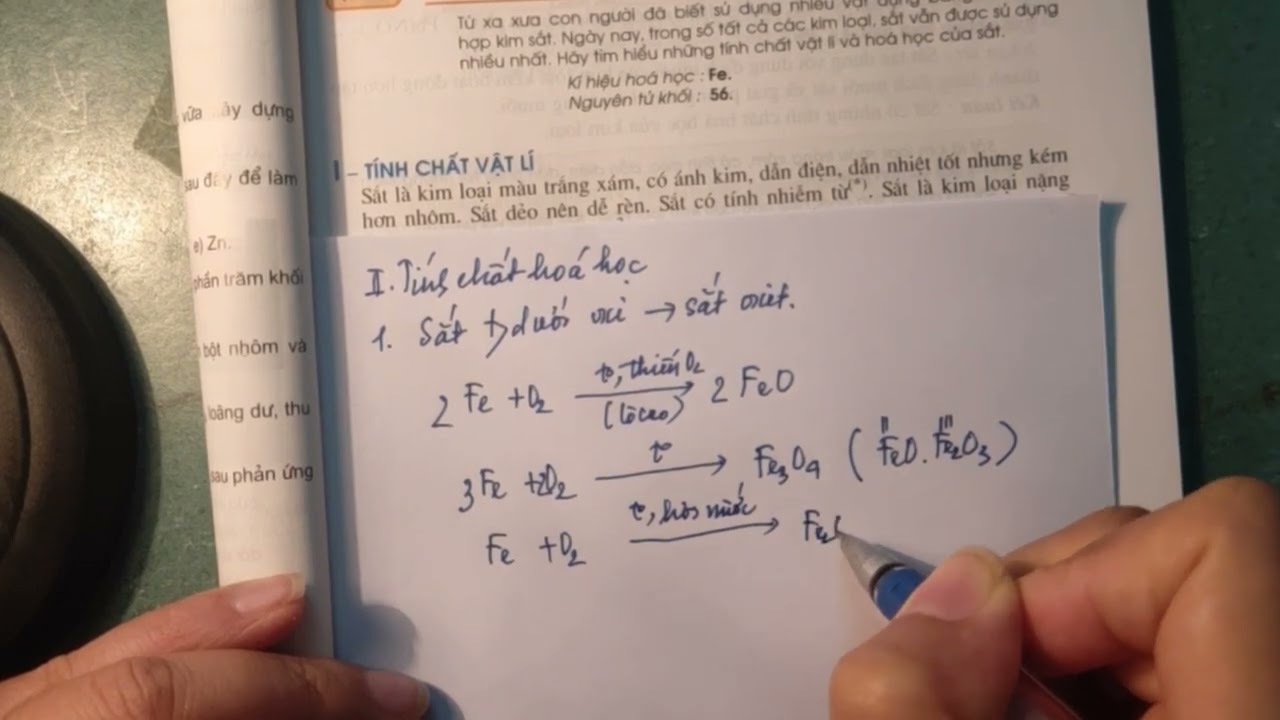 Từ xa xưa con người đã biết sử dụng nhiều vật dụng
hợp kim sắt. Ngày nay, trong số tất cả các kim loại, sắt vẫn được sử dụng
nhiều nhất. Hãy tìm hiểu những tính chất vật lí và hoá học của sắt.
Kí hiệu hoá học : Fe.
Nguyên tử khối : 56.
vữa ây dựng
sau đây để làm
e) Zn.
phần trăm khối
bột nhôm và
bằng dư, thu
sau phản ứng
I – TÍNH CHẤT VẬT LÍ
Sắt là kim loại màu trắng xám, có ánh kim, dẫn điện, dẫn nhiệt tốt nhưng kém
hơn nhôm. Sắt dẻo nên dễ rèn. Sắt có tính nhiễm từ(*). Sắt là kim loại nặng
II. Tính chất hoá học
1. Sắt dưới oxi → sắt oxit.
2 Fe + O2 → 2 FeO
t°, thiếu O2
(lò cao)
3Fe + 2O2 → Fe3O4 ( FeO. Fe2O3 )
t°
II III
Fe + O2 → Fe2
t°, hơi nước